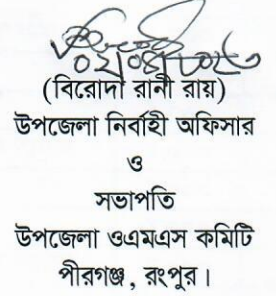 (বিরোদা রানী রায়)
উপজেলা নির্বাহী অফিসার
ও
সভাপতি
উপজেলা ওএমএস কমিটি
পীরগঞ্জ, রংপুর।